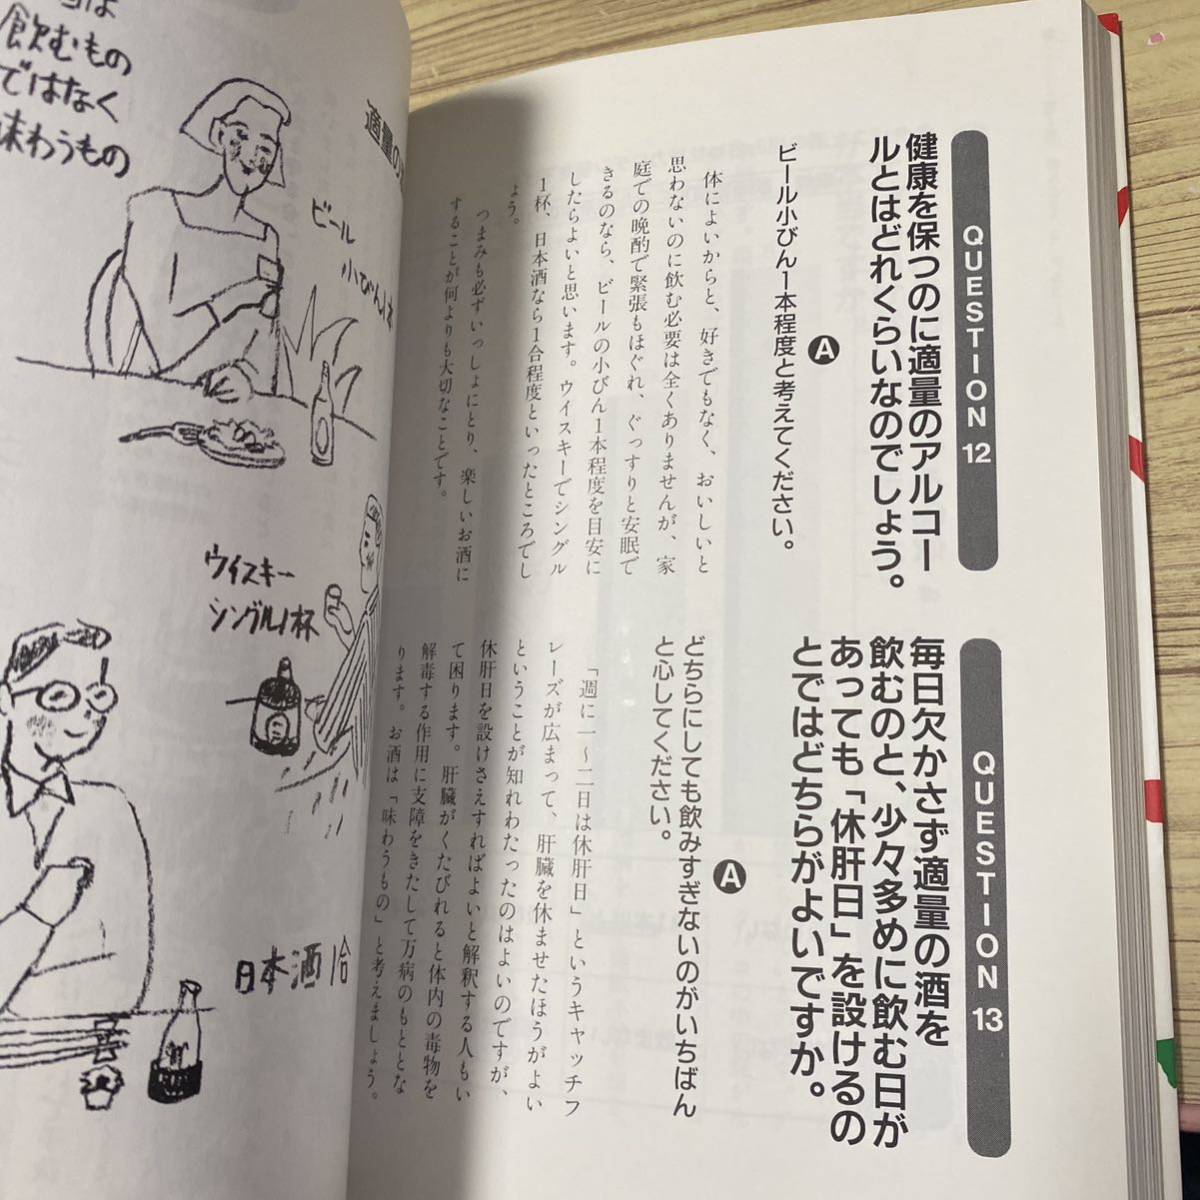 QUESTION 12
健康を保つのに適量のアルコー
ルとはどれくらいなのでしょう。
A
ビール小びん1本程度と考えてください。
体によいからと、好きでもなく、おいしいと
思わないのに飲む必要は全くありませんが、家
庭での晩酌で緊張もほぐれ、ぐっすりと安眠で
きるのなら、ビールの小びん1本程度を目安に
したらよいと思います。ウイスキーでシングル
1杯、日本酒なら1合程度といったところでし
ょう。
つまみも必ずいっしょにとり、楽しいお酒に
することが何よりも大切なことです。
QUESTION 13
毎日欠かさず適量の酒を
飲むのと、少々多めに飲む日が
あっても「休肝日」を設けるの
とではどちらがよいですか。
A
どちらにしても飲みすぎないのがいちばん
と心してください。
「週に一〜二日は休肝日」というキャッチフ
レーズが広まって、肝臓を休ませたほうがよい
ということが知れわたったのはよいのですが、
休肝日を設けさえすればよいと解釈する人もい
て困ります。肝臓がくたびれると体内の毒物を
解毒する作用に支障をきたして万病のもととな
ります。お酒は「味わうもの」と考えましょう。
適量の
は
飲むもの
ではなく
味わうもの
ビール
小びん1本
ウイスキー
シングル1杯
日本酒1合